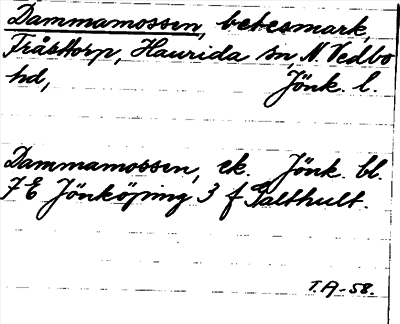 Dammamossen, betesmark,
Fråstorp, Haurida sn, N. Vedbo
hd, Jönk. l.
Dammamossen, ek. Jönk. bl.
7E Jönköping 3 f Palthult.
T.A-58.